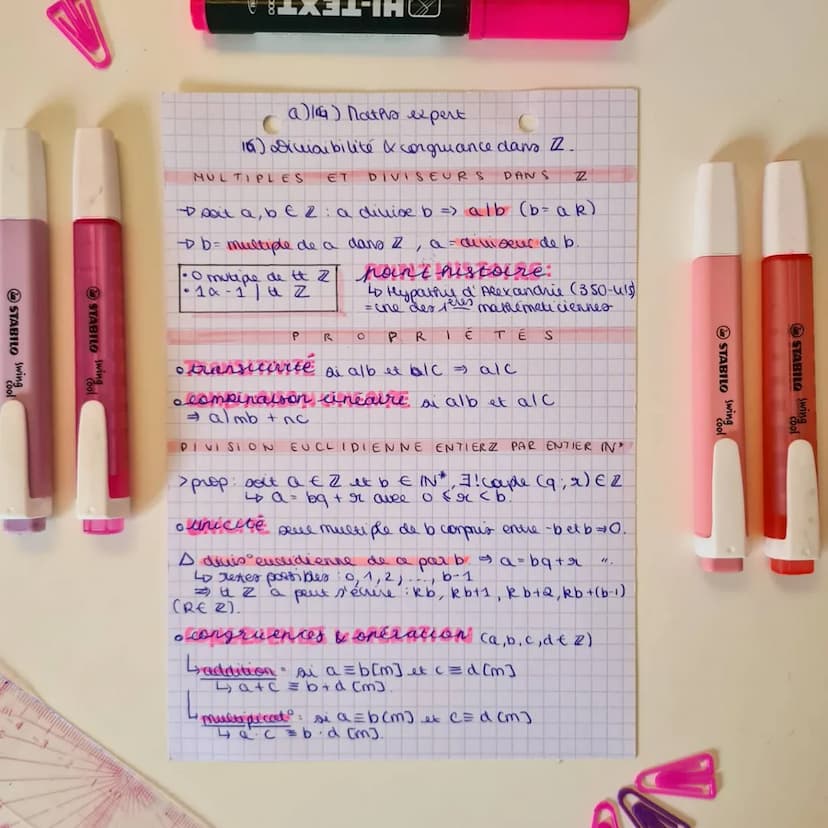 HI-TEXT
a) Maths expert
1G) Divisibilité & congruance dans ℤ.
MULTIPLES ET DIVISEURS DANS ℤ
→ soit a, b ∈ ℤ : a divise b => a|b (b = a k)
→ b = multiple de a dans ℤ, a = diviseur de b.
• 0 mutipe de tt ℤ
• 1 a -1 | tt ℤ
point histoire:
↳ Hypathie d'Alexandrie (350-415)
= une des 1ères mathématiciennes
PROPRIÉTÉS
• transitivité si a|b et b|c => a|c
• combinaison linéaire si a|b et a|c
=> a|mb + nc
DIVISION EUCLIDIENNE ENTIER ℤ PAR ENTIER IN*
> prop: soit a ∈ ℤ et b ∈ IN*, ∃! couple (q; r) ∈ ℤ
↳ a = bq + r avec 0 ≤ r < b.
• unicité seul multiple de b compris entre -b et b => 0.
△ divis° euclidienne de a par b. => a = bq + r "
↳ restes possibles : 0, 1, 2, ..., b-1
=> tt ℤ a peut s'écrire : kb, kb+1, kb+2, kb+(b-1)
(k ∈ ℤ).
• congruences & opération (a,b,c,d ∈ ℤ)
↳ addition° si a ≡ b [m] et c ≡ d [m]
↳ a + c ≡ b + d [m].
↳ multiplicat° : si a ≡ b [m] et c ≡ d [m]
↳ a · c ≡ b · d [m].
STABILO swing cool
STABILO swing cool
STABILO swing cool
STABILO swing cool